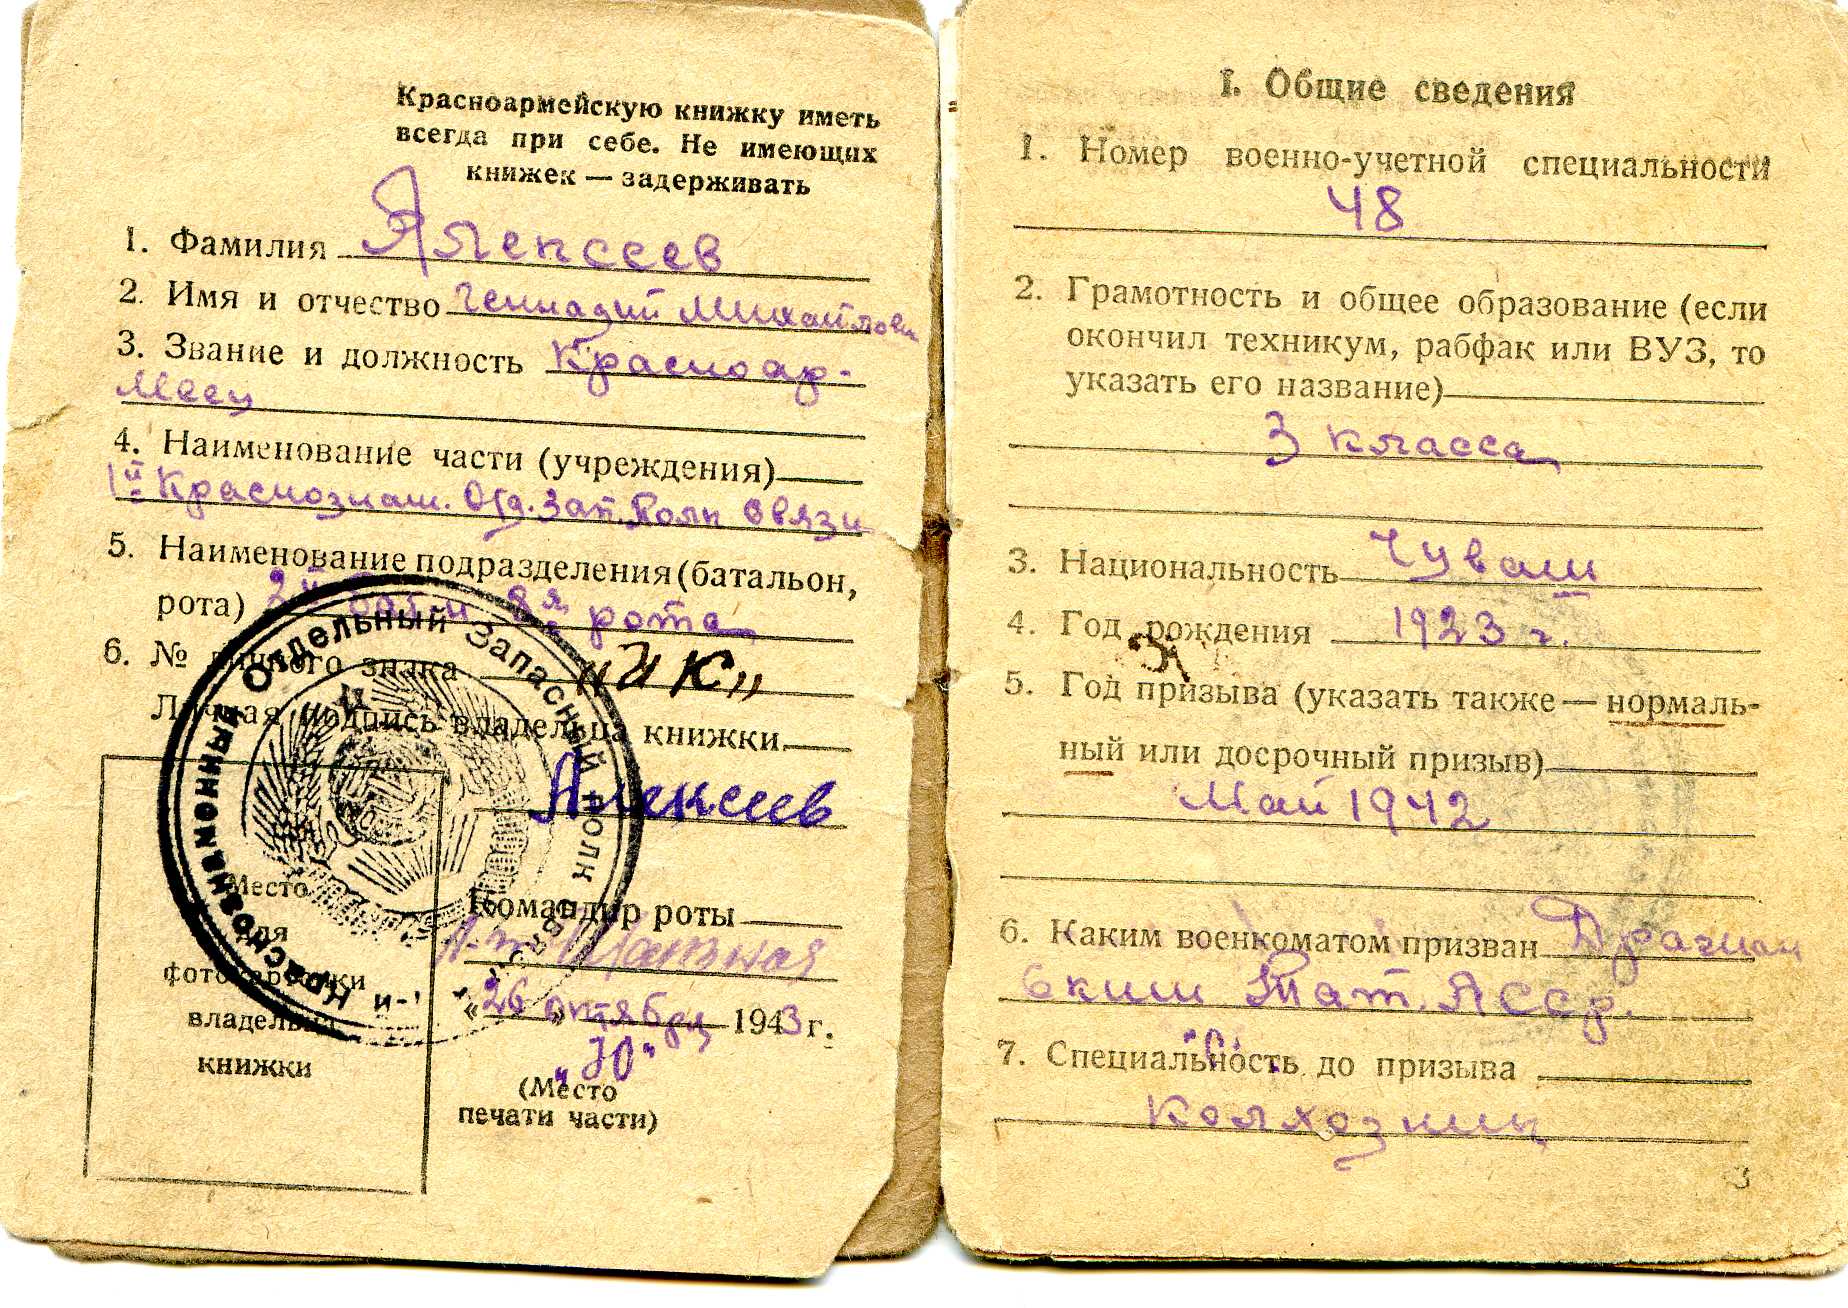 Красноармейскую книжку иметь
всегда при себе. Не имеющих
книжек — задерживать
1. Фамилия Алексеев
2. Имя и отчество Геннадий Михайлови
3. Звание и должность Красноар-
меец
4. Наименование части (учреждения)
1й Краснознам. Отд. Зап. Полк Связи
5. Наименование подразделения (батальон,
рота) 2й бат-н 8я рота
6. № личного знака „ИК„
Личная подпись владельца книжки
Алексеев
Место
для
фотокарточки
владельца
книжки
Командир роты
„26„ октября 1943 г.
„Ю“
(Место
печати части)
-й Краснознаменный Отдельный Запасный полк связи
I. Общие сведения
1. Номер военно-учетной специальности
48
2. Грамотность и общее образование (если
окончил техникум, рабфак или ВУЗ, то
указать его название)
3 класса
3. Национальность Чуваш
4. Год рождения 1923 г.
5. Год призыва (указать также — нормаль-
ный или досрочный призыв)
Май 1942
6. Каким военкоматом призван
Тат. АССР.
7. Специальность до призыва
Колхозник
3